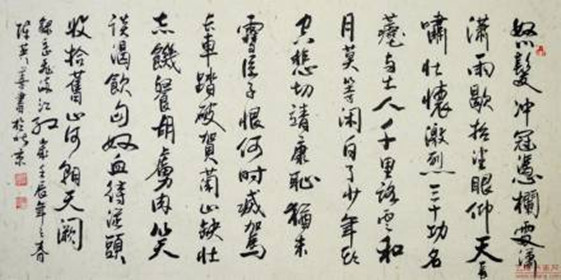 怒髮冲冠憑欄處瀟
瀟雨歇抬望眼仰天長
嘯壯懷激烈三十功名
塵与土八千里路雲和
月莫等闲白了少年頭
空悲切靖康恥猶未
雪臣子恨何时滅駕
長車踏破賀蘭山缺壯
志饑餐胡虜肉笑
談渴飲匈奴血待從頭
收拾舊山河朝天闕
岳飛滿江红 歲壬辰年之春
書於北京